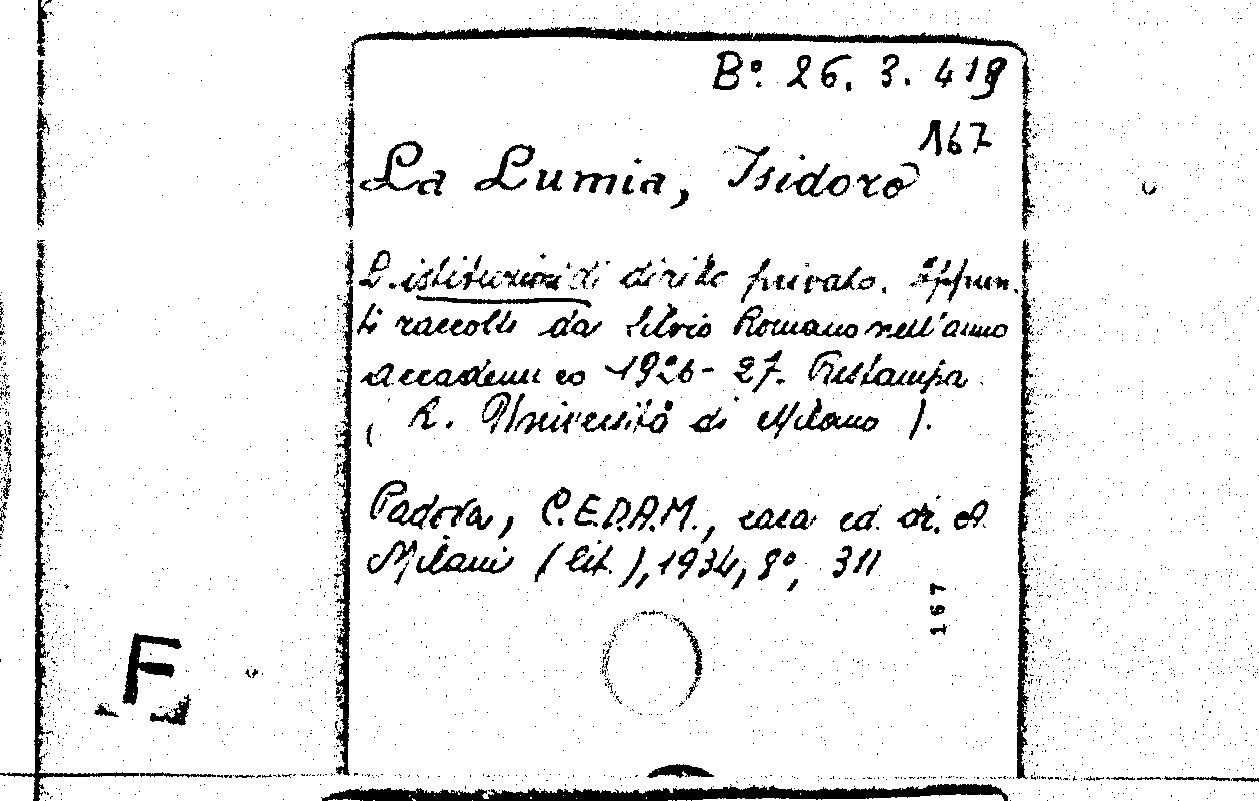 B°. 26. 3. 419
167
La Lumia, Isidoro
L'istituzioni di diritto privato. Appun-
ti raccolti da Silvio Romano nell'anno
accademico 1926-27. Ristampa
( R. Università di Milano ).
Padova, C.E.D.A.M., casa ed. dr. A.
Milani (lit.), 1934, 8°, 311
167
F